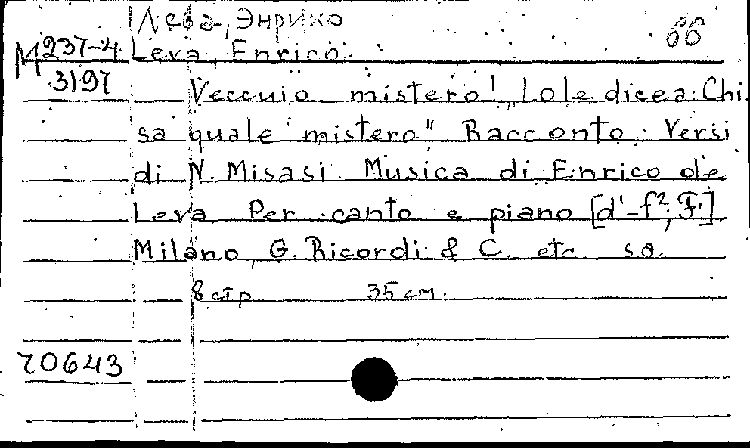 Лева, Энрико
66
М 237-4 Leva, Enrico.
3197
Veccuio mistero! "Lole dicea: Chi
sa quale mistero" Racconto. Versi
di N. Misasi. Musica di Enrico de
Leva Per canto e piano [d'-f²; F.]
Milano, G. Ricordi & C. etc. s.a.
8 стр. 35 см.
70643